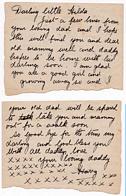 Darling little Hilda
Just a few lines from
your loving dad and I hope
this will find you and dear
old mammy well and daddy
hopes to be home with
darling soon. I
you are a good girl and
growing away so and I
your old dad will be spared
to take you and mammy
out for a
So good bye for the time my
darling and god bless you
that all daddy can say
x x x x Your loving daddy
x x x x x x x Harry
x x x x x x x x x x